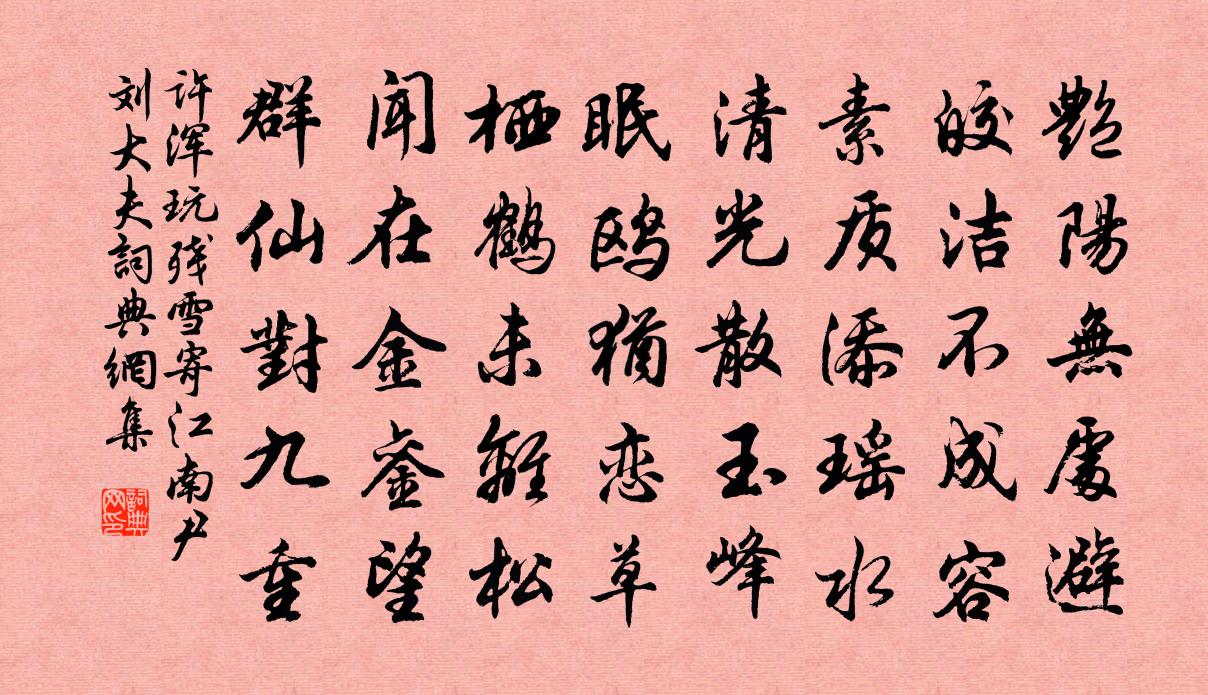 艷陽無處避
皎洁不成容
素质添瑶水
清光散玉峰
眠鸥猶恋草
栖鶴未離松
闻在金銮望
群仙對九重
许浑玩残雪寄江南尹
刘大夫詞典網集
詞典网印